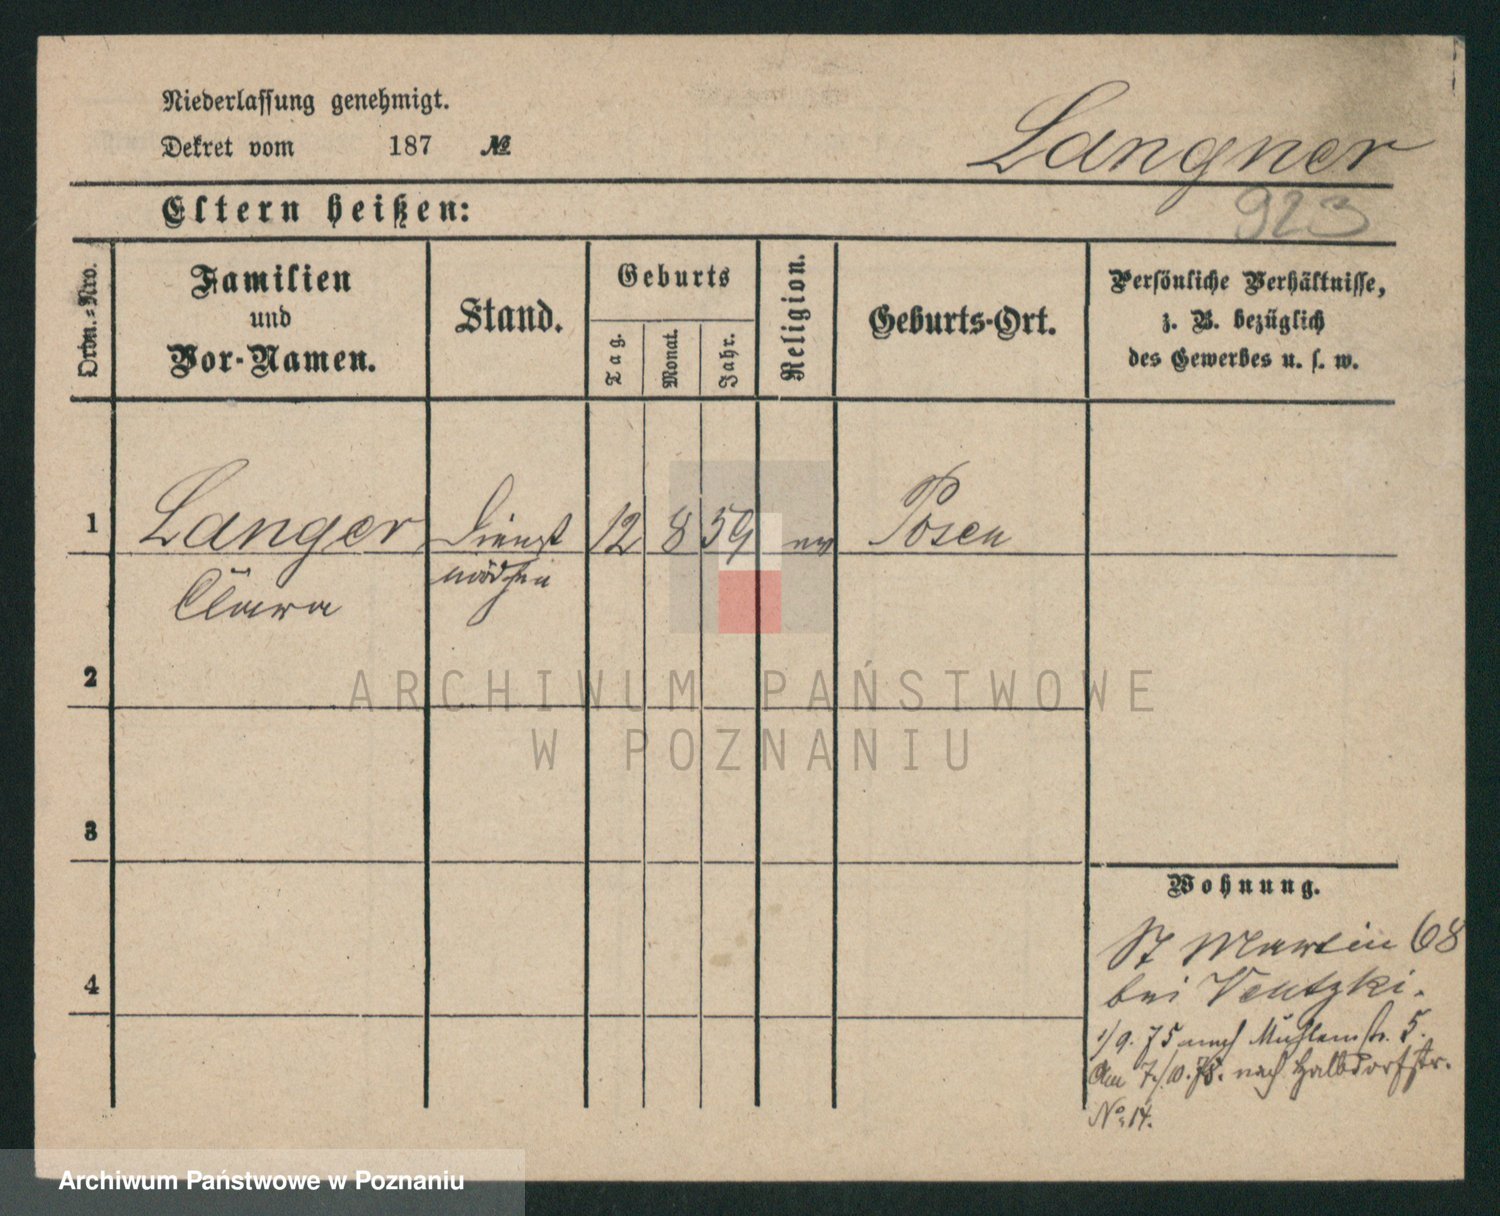 Niederlassung genehmigt.
Dekret vom 187 №
Langner
923
Eltern heißen:
Ordn.-Nro.
Familien
und
Vor-Namen.
Stand.
Geburts
Tag.
Monat.
Jahr.
Religion.
Geburts-Ort.
Persönliche Verhältnisse,
z. B. bezüglich
des Gewerbes u. s. w.
1 Langer Dienst 12 8 59 ev Posen
Clara mädchen
2
3
4
Wohnung.
St Martin 68
bei Ventzki.
1/9. 75 nach Mühlenstr. 5.
Am 7./10. 78. nach Halbdorfstr.
No. 14.
ARCHIWUM PAŃSTWOWE
W POZNANIU
Archiwum Państwowe w Poznaniu